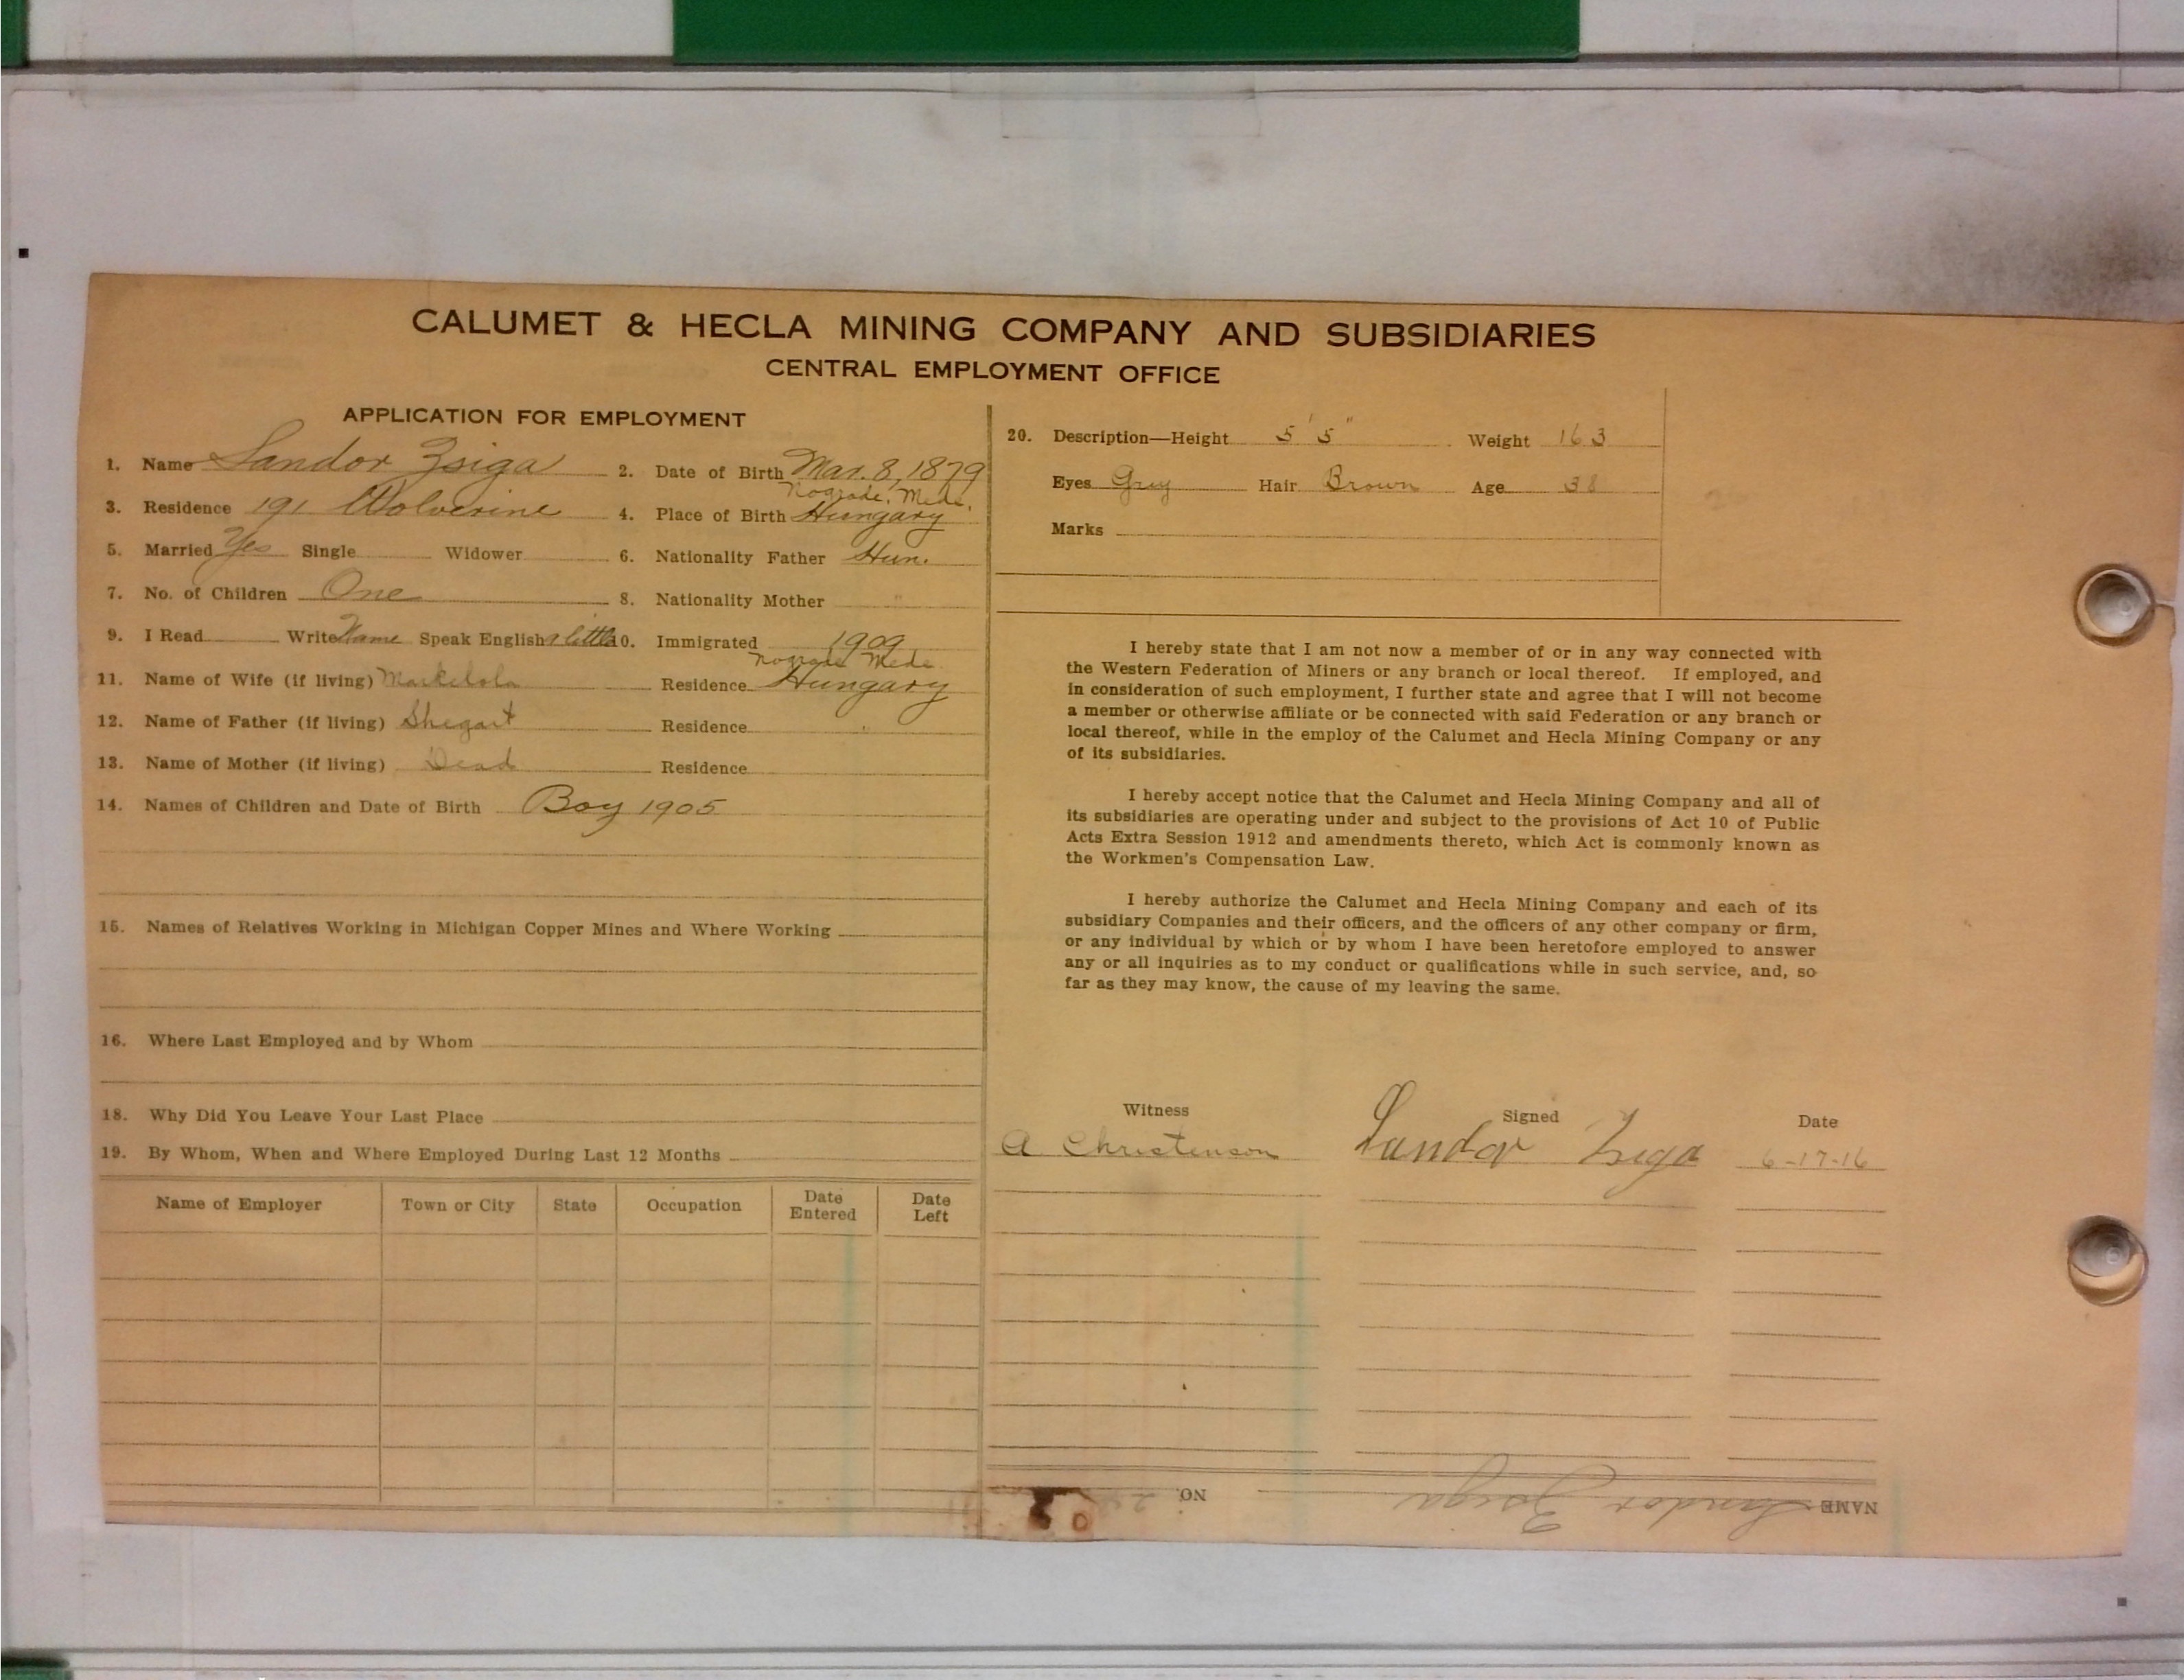 CALUMET & HECLA MINING COMPANY AND SUBSIDIARIES
CENTRAL EMPLOYMENT OFFICE
APPLICATION FOR EMPLOYMENT
1. Name Sandor Zsiga 2. Date of Birth Mar. 8, 1879
Nograde, Mede.
3. Residence 191 Wolverine 4. Place of Birth Hungary
5. Married Yes Single Widower 6. Nationality Father Hun.
7. No. of Children One 8. Nationality Mother "
9. I Read Write Name Speak English a little 10. Immigrated 1909
Nograde Mede
11. Name of Wife (if living) Markelola Residence Hungary
12. Name of Father (if living) Shegart Residence "
13. Name of Mother (if living) Dead Residence
14. Names of Children and Date of Birth Boy 1905
15. Names of Relatives Working in Michigan Copper Mines and Where Working
16. Where Last Employed and by Whom
18. Why Did You Leave Your Last Place
19. By Whom, When and Where Employed During Last 12 Months
Name of Employer Town or City State Occupation Date Entered Date Left
20. Description—Height 5' 5" Weight 163
Eyes Grey Hair Brown Age 38
Marks
I hereby state that I am not now a member of or in any way connected with
the Western Federation of Miners or any branch or local thereof. If employed, and
in consideration of such employment, I further state and agree that I will not become
a member or otherwise affiliate or be connected with said Federation or any branch or
local thereof, while in the employ of the Calumet and Hecla Mining Company or any
of its subsidiaries.
I hereby accept notice that the Calumet and Hecla Mining Company and all of
its subsidiaries are operating under and subject to the provisions of Act 10 of Public
Acts Extra Session 1912 and amendments thereto, which Act is commonly known as
the Workmen's Compensation Law.
I hereby authorize the Calumet and Hecla Mining Company and each of its
subsidiary Companies and their officers, and the officers of any other company or firm,
or any individual by which or by whom I have been heretofore employed to answer
any or all inquiries as to my conduct or qualifications while in such service, and, so
far as they may know, the cause of my leaving the same.
Witness Signed Date
A Christenson Sandor Zsiga 6-17-16
NAME Sandor Zsiga NO.